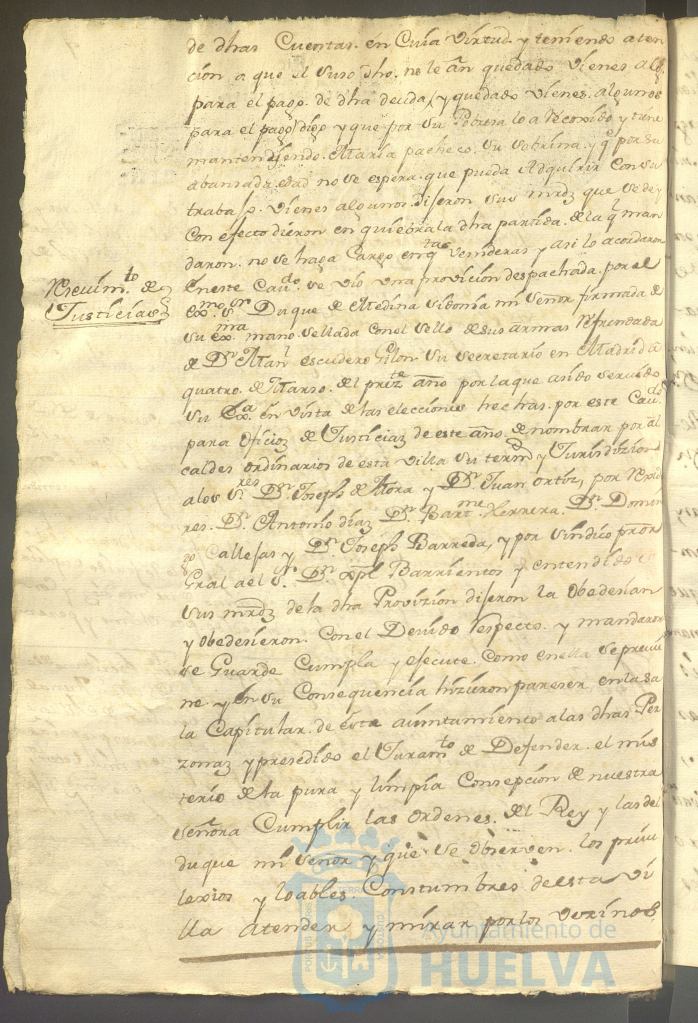 de dhas Cuentas. en Cuia Virtud. y teniendo aten
cion a que el suso dho. no le an quedado Vienes alg.
para el pago. de dha deuda, y quedado Vienes. algunos
para el pago digo y que por su Pobreza lo a recoxido y tiene
manteniendo. Maria pacheco. su sobrina. y q. por su
abansada. edad no se espera. que pueda Adquirir Con su
trabajo. Vienes algunos. dijeron sus mrdz que se de y
Con efecto dieron en quiebra la dha partida. de la q. man
daron. no se haga Cargo en qtas Venideras y asi lo acordaron
Resevim.to de
Justicias
En este Cau.do se vio una provicion despachada. por el
Ex.mo S.or Duque de Medina sidonia mi señor firmada de
su Ex.ma mano. sellada con el sello de sus armas Refrendada
de D.n Man.l escudero Gilon. su secretario en Madrid a
quatro. de Marso. del pres.te año por la que a sido servido
su Ex.a en vista de las elecciones hechas. por este Cau.do
para oficios de Justiciaz de este año. de nombrar por al
caldes ordinarios de esta villa su term.o y Jurisdizion
a los S.res D.n Joseph de Mora y D.n Juan ortiz, por Rexido
res. D.n Antonio diaz D.n Bart.me Herrera. D.n Domin
go Callejas y D.n Joseph Barreda, y por sindico pror
Gral a el S.r D.n xpl Barrientos y entendido
sus mrdz de la dha Provizion dijeron la obedesian
y obedesieron. Con el Devido respecto. y mandaron
se Guarde Cumpla y ejecute. Como en ella se previe
ne y en su Consequencia hizieron pareser en la sa
la Capitular. de este aiuntamiento a las dhas Per
zonaz y presedido el Juram.to de Defender. el mis
terio de la pura y limpia Consepcion de nuestra
señora Cumplir las ordenes. del Rey y las del
duque mi señor y que se observen. los privi
lexios y loables. Constumbres de esta vi
lla atender y mirar por los vezinos.
Ayuntamiento de
HUELVA